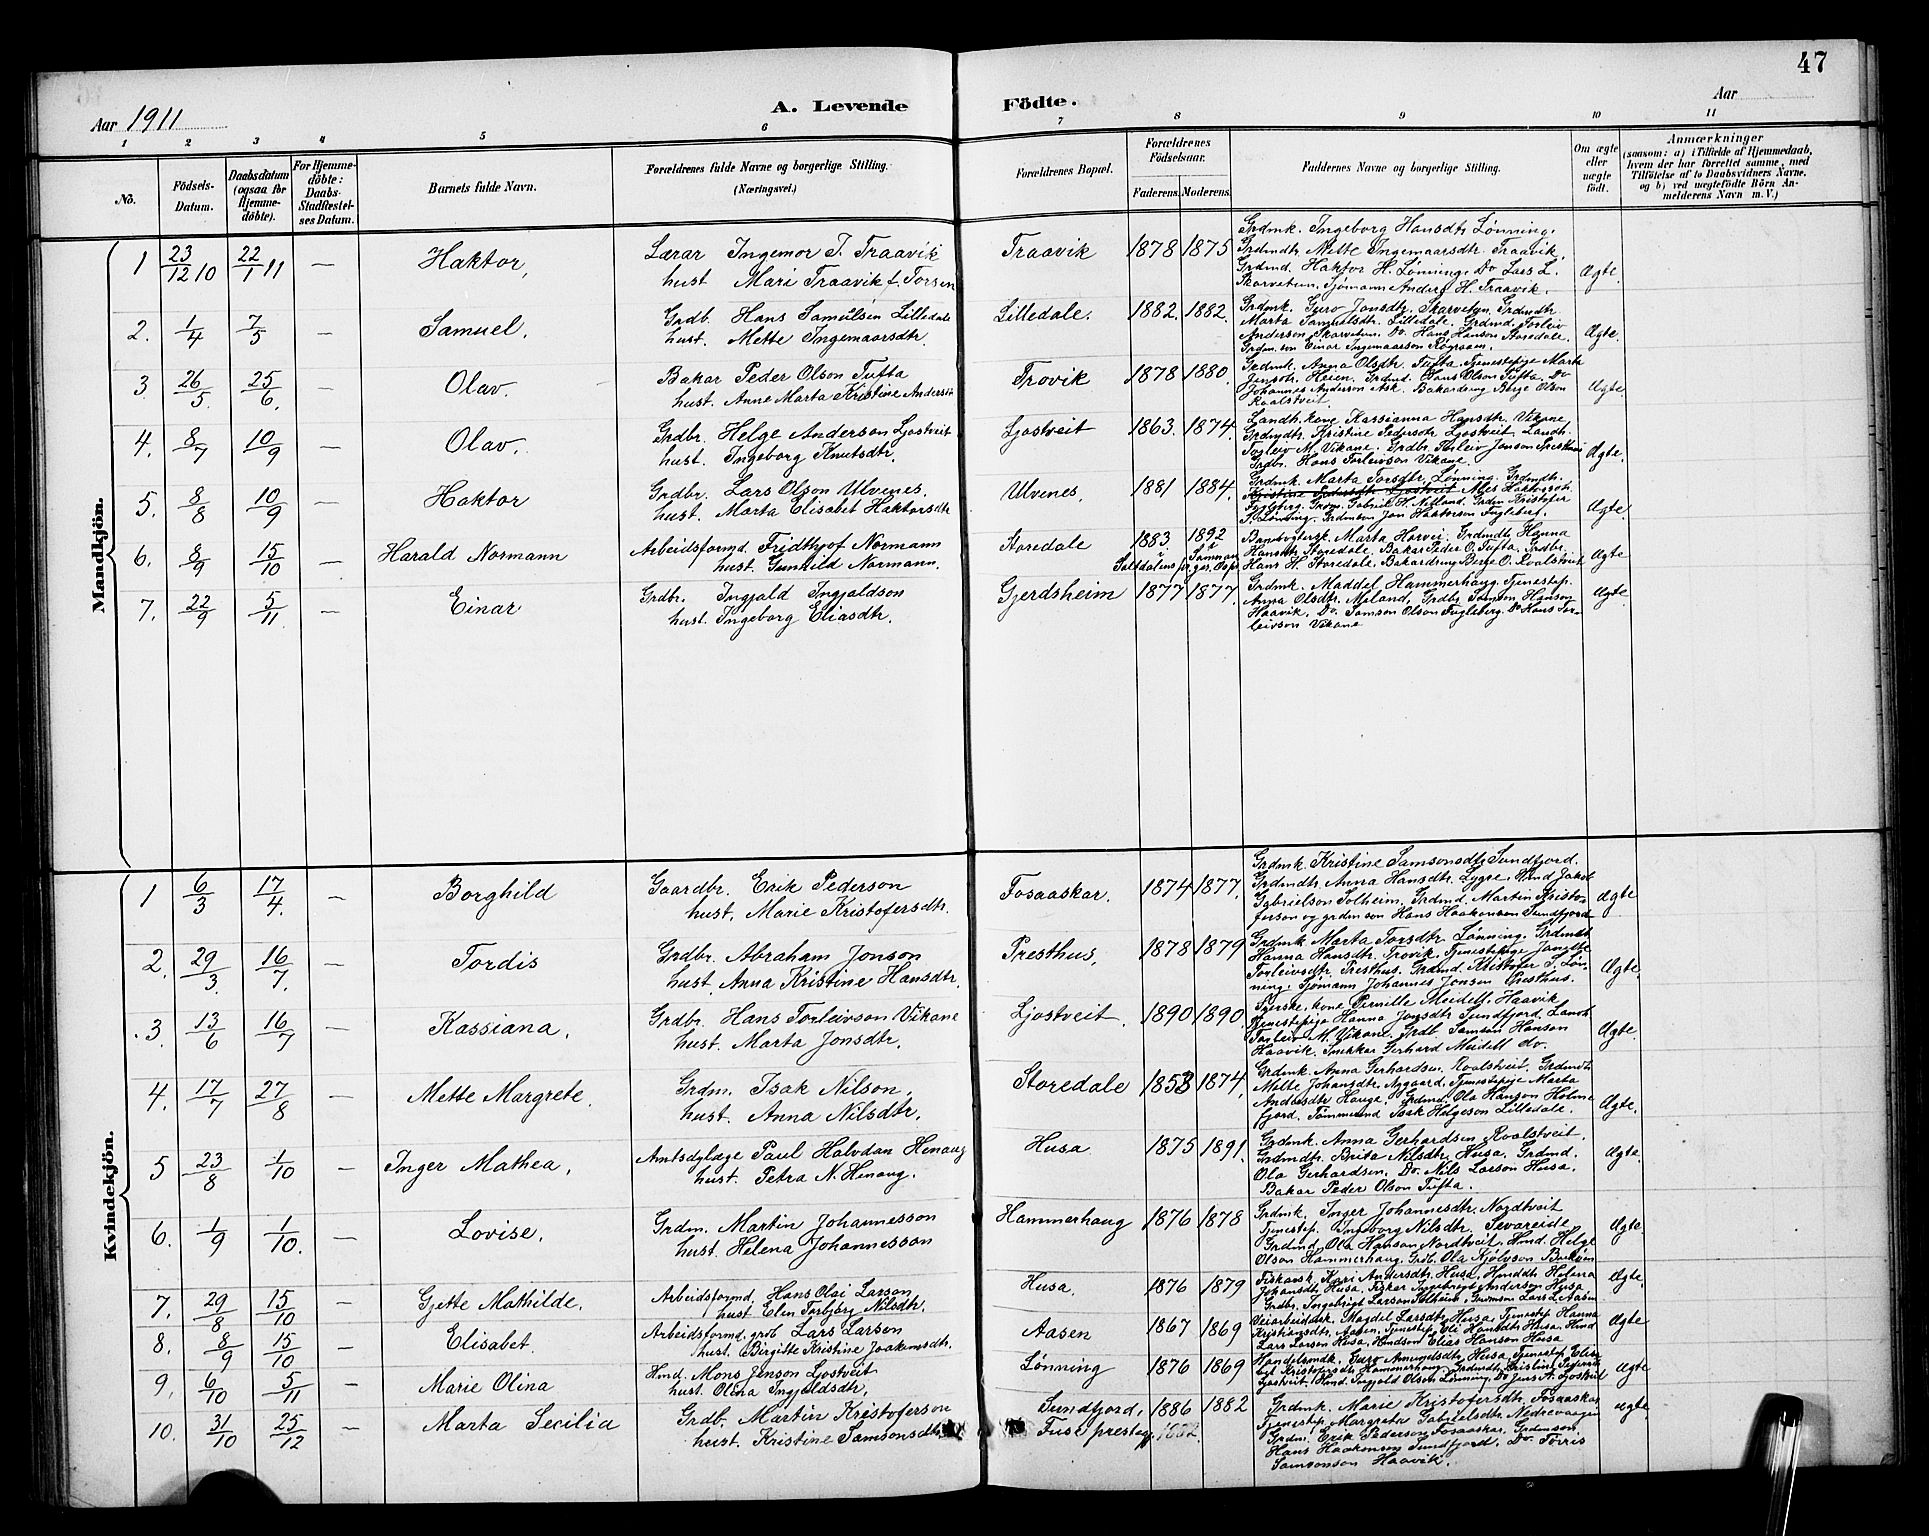 47
Aar 1911
A. Levende Födte.
Aar
1 2 3 4 5 6 7 8 9 10 11
No.
Födsels-Datum.
Daabsdatum (ogsaa for Hjemme-döbte).
For Hjemme-döbte: Daabs-Stadfæstelses Datum.
Barnets fulde Navn.
Forældrenes fulde Navne og borgerlige Stilling. (Næringsvei.)
Forældrenes Bopæl.
Forældrenes Födselsaar.
Faderens. Moderens.
Faddernes Navne og borgerlige Stilling.
Om ægte eller uægte födt.
Anmærkninger
(saasom: a) i Tilfælde af Hjemmedaab, hvem der har forrettet samme, med Tilföielse af to Daabsvidners Navne, og b) ved uægtefödte Börn Anmelderens Navn m. V.)
Mandkjön.
1 23/12 10 22/1 11 — Haktor, Lærar Ingemor I. Traavik
hust Mari Traavik f. Torsen Traavik 1878 1875 Grdmk. Ingeborg Hansdtr Lønning,
Grdmdtr Mette Ingemaarsdtr. Traavik,
Grdmd. Haktor H. Lønning, Do Lars L.
Skarvetun, Sjømann Anders H. Traavik. Ægte.
2. 1/4 7/5 — Samuel, Grdb. Hans Samulsen Lilledale
hust. Mette Ingemaarsdtr. Lilledale. 1882. 1882. Grdmk. Guro Jonsdtr. Skarvetun, Grdmdtr.
Marta Samulsdtr. Lilledale, Grdmd. Torleiv
Anderson, Skarvetun, Do. Hans Hanson Storedale,
Grdm. son Einar Ingemaarson Ægte.
3 26/5. 25/6. — Olav. Bakar Peder Olson Tufta
hust. Anne Marta Kristine Andersdtr Trovik 1878 1880. Grdmk. Anna Olsdtr. Tufta, Tjenestepige Marta
Jensdtr. Heien, Grdmd. Hans Olson Tufta, Do
Johannes Anderson Ask. Bakardreng Berge Olson
Roalstveit. Ægte
4. 8/7 10/9 — Olav. Grdbr. Helge Anderson Ljostveit
hust. Ingeborg Knutsdtr. Ljostveit 1863. 1874. Landh. kone Kassianna Hansdtr. Vikane,
Grdmdtr. Kristine Pedersdtr Ljostveit, Landh.
Torleiv M. Vikane, Grdbr. Torleiv Jonson Presthus
Grdbr. Hans Torleivson Vikane. Ægte.
5. 8/8 10/9 — Haktor Grdbr. Lars Olson Ulvenes.
hust. Marta Elisabet Haktorsdtr Ulvenes, 1881 1884. Grdmk. Marta Torsdtr, Lønning, Grdmdtr.
Kristine Pedersdtr Ljostveit Ales Haktorsdtr.
Fugleberg, Grdm. Gabriel H. Nilland, Grdm Kristofer
T. Lønning, Grdmson Jon Haktorson Fugleberg. Ægte.
6. 8/9 15/10 — Harald Normann Arbeidsformd. Fridthjof Normann
hust. Gunhild Normann. Storedale 1883. 1892 Banevogtersk. Marta Horvei. Grdmdtr Hanna
Hansdtr Storedale, Bakar Peder O. Tufta, Grdbr.
Hans H. Storedale, Bakardreng Berge O. Roalstveit Ægte
7. 22/9 5/11 — Einar Grdbr. Ingjald Ingjaldson
hust. Ingeborg Eliasdtr. Gjerdsheim 1877 1877. Grdmk. Maddel Hammerhaug, Tjenestep.
Anna Olsdtr. Meland, Grdbr Samson Hanson
Haavik, Do. Samson Olson Fugleberg, Do Hans Tor-
leivson Vikane Ægte
Kvindekjön.
1 6/3 17/4. — Borghild Gaardbr. Erik Pederson
hust. Marie Kristofersdtr. Fosaaskar. 1874 1877. Grdmk. Kristine Samsonsdtr, Sundfjord.
Grdmdtr. Anna Hansdtr. Lygre, Hmd Jakob
Gabrielson Solheim, Grdmd. Martin Kristo-
ferson og grdm son Hans Haakonson Sundfjord Ægte
2. 29/3. 16/7. — Tordis Grdbr. Abraham Jonson
hust. Anna Kristine Hansdtr. Presthus, 1878 1879 Grdmk Marta Torsdtr. Lønning, Grdmdtr
Hanna Hansdtr. Trovik, Tjenestepige Janette
Torleivsdtr. Presthus, Grdmd. Kristofer T. Løn-
ning, Sjømann Johannes Jonsen Presthus. Ægte.
3. 13/6 16/7 — Kassiana, Grdbr. Hans Torleivson Vikane
hust. Marta Jonsdtr. Ljostveit. 1890 1890. kone Pernille Meidell, Haavik
Tjenestepige Hanna Jonsdtr Sundfjord, Landh.
Torleiv M. Vikane, Grdb. Samson Hanson
Haavik. Snekkar Gerhard Meidell do. Ægte.
4. 17/7 27/8 — Mette Margrete. Grdm. Isak Nilson,
hust. Anna Nilsdtr. Storedale 1853 1874. Grdmk. Anna Gerhardsen, Roalstveit, Grdmdtr.
Mette Johansdtr, Nygaard, Tjenestepige Marta
Andersdtr Hauge, Grdmd. Ola Hanson Holme
fjord, Tømmermd Isak Helgeson Lilledale. Ægte.
5 23/8 1/10 — Inger Mathea, Amtsdylæge Paul Halvdan Henaug
hust. Petra N. Henaug. Husa 1875 1891. Grdmk. Anna Gerhardsen Roalstveit.
Grdmdtr. Brita Nilsdtr. Husa, Grdmd.
Ola Gerhardsen, Do. Nils Larson Husa.
Bakar Peder Olson Tufta. Ægte.
6. 1/9 1/10. — Lovise. Grdm. Martin Johannesson
hust. Helena Johannesson Hammerhaug 1876 1878 Grdmk. Inger Johannesdtr. Nordtveit
Tjenestep. Ingeborg Nilsdtr. Sevareide,
Grdmd. Ola Hanson Nordtveit, Hmd. Helge
Olson Hammerhaug, Grdb. Ola Kjølvson Ægte.
7. 29/8 15/10 — Gjette Mathilde. Arbeidsformd. Hans Olai Larson
hust Elen Torbjørg Nilsdtr. Husa. 1876 1879 Fiskarsk. Kari Andersdtr. Husa, Hmddtr. Helena
Johansdtr Husa, Fiskar Ingebrigt Anderson Husa
Grdbr. Ingebrigt Larson Solheim, Larsd. Aasen Ægte.
8. 8/9 15/10 — Elisabet. Arbeidsformd. Lars Larsen
hust. Birgitte Kristine Joakimsdtr. Aasen 1867 1869 Veiarbeidersk. Magdel Larsdtr Husa, Tjenestep Hanna
Kristiansdtr, Aasen, Tjenestep. Hansdtr Husa, Hmd
Lars Larson Husa, Hmdson Elias Hanson Husa Ægte
9. 6/10 5/11 — Marie Olina Hmd. Mons Jenson Ljostveit
hust. Olina Ingjaldsdtr. Lønning 1876 1869 Handelsmdk. Guro Amundsdtr Husa, Tjenestep. Elisa
bet Kristofersdtr Hammerhaug, Grdmdtr. Kristine Pedersdtr
Ljostveit, Hmd. Ingjald Olson Lønning, Do Jens A. Ljostveit Ægte
10. 31/10 25/12 — Marta Secilia Grdb. Martin Kristoferson
hust. Kristine Samsonsdtr. Sundfjord,
Fuse prestegj. 1886 1882
1882. Grdmk. Marie Kristofersdtr, Fosaaskar
Tjenestep. Margreta Gabrielsdtr Nedrevaagen
Grdm. Erik Pederson Fosaaskar, Grdmson.
Hans Haakonson Sundfjord, Do. Torris
Samsonson Haavik. Ægte.